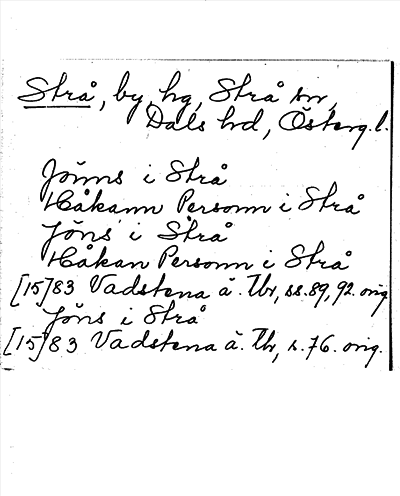 Strå, by, hg, Strå sn,
Dals hd, Österg. l.
Jönns i Strå
Håkann Personn i Strå
Jöns i Strå
Håkan Personn i Strå
[15]83 Vadstena ä. Tbr, ss. 89, 92. orig
Jöns i Strå
[15]83 Vadstena ä. Tbr, s. 76. orig.